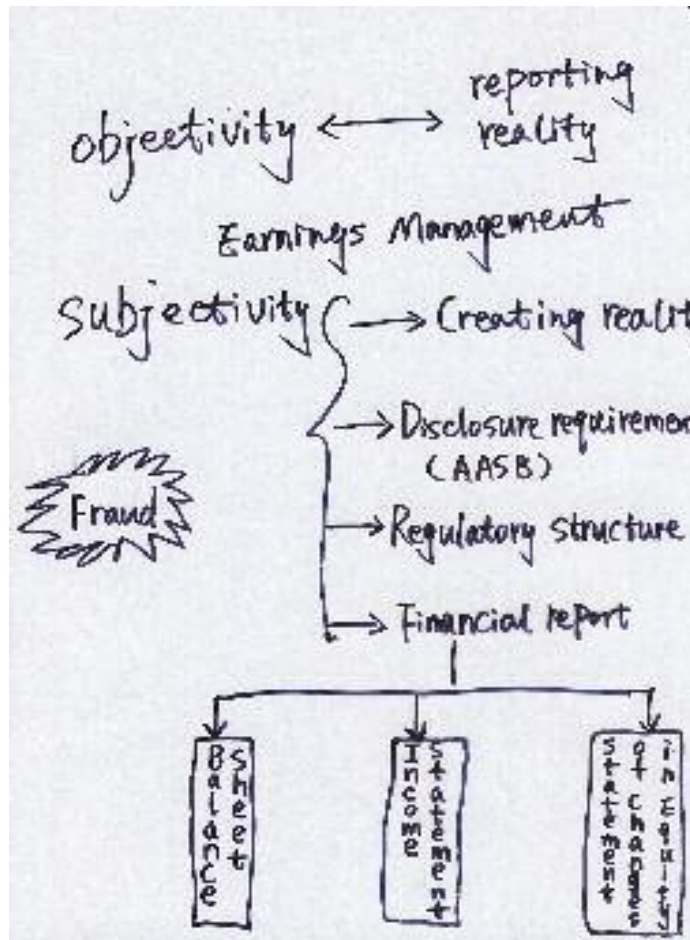 objectivity ↔ reporting
reality
Earnings Management
Subjectivity → Creating realit
→ Disclosure requiremen
(AASB)
Fraud
→ Regulatory structure
→ Financial report
Balance
Sheet
Income
Statement
statement
of changes
in Equity